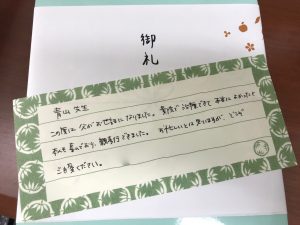 御礼
青山 先生
この度は 父がお世話になりました。 貴院で治療できて 本当によかったと
私も喜んでおり、親孝行できました。 お忙しいとは思いますが、どうぞ
ご自愛ください。